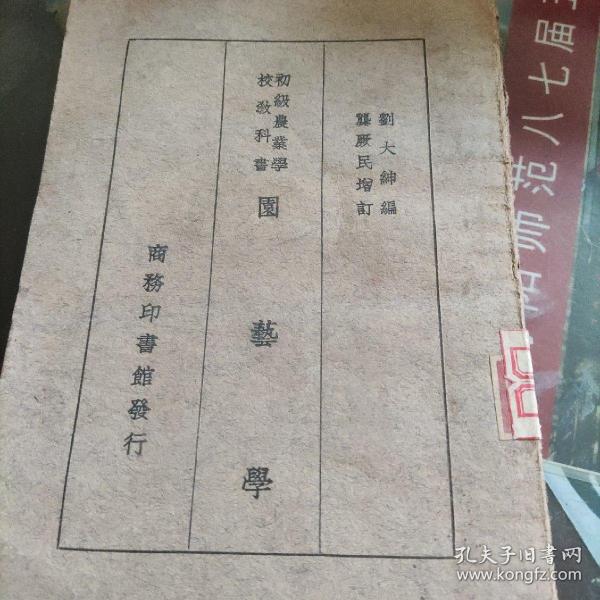 劉大紳編
龔厥民增訂
初級農業學
校教科書
園藝學
商務印書館發行
师范八七届
孔夫子旧书网
www.kongfz.com